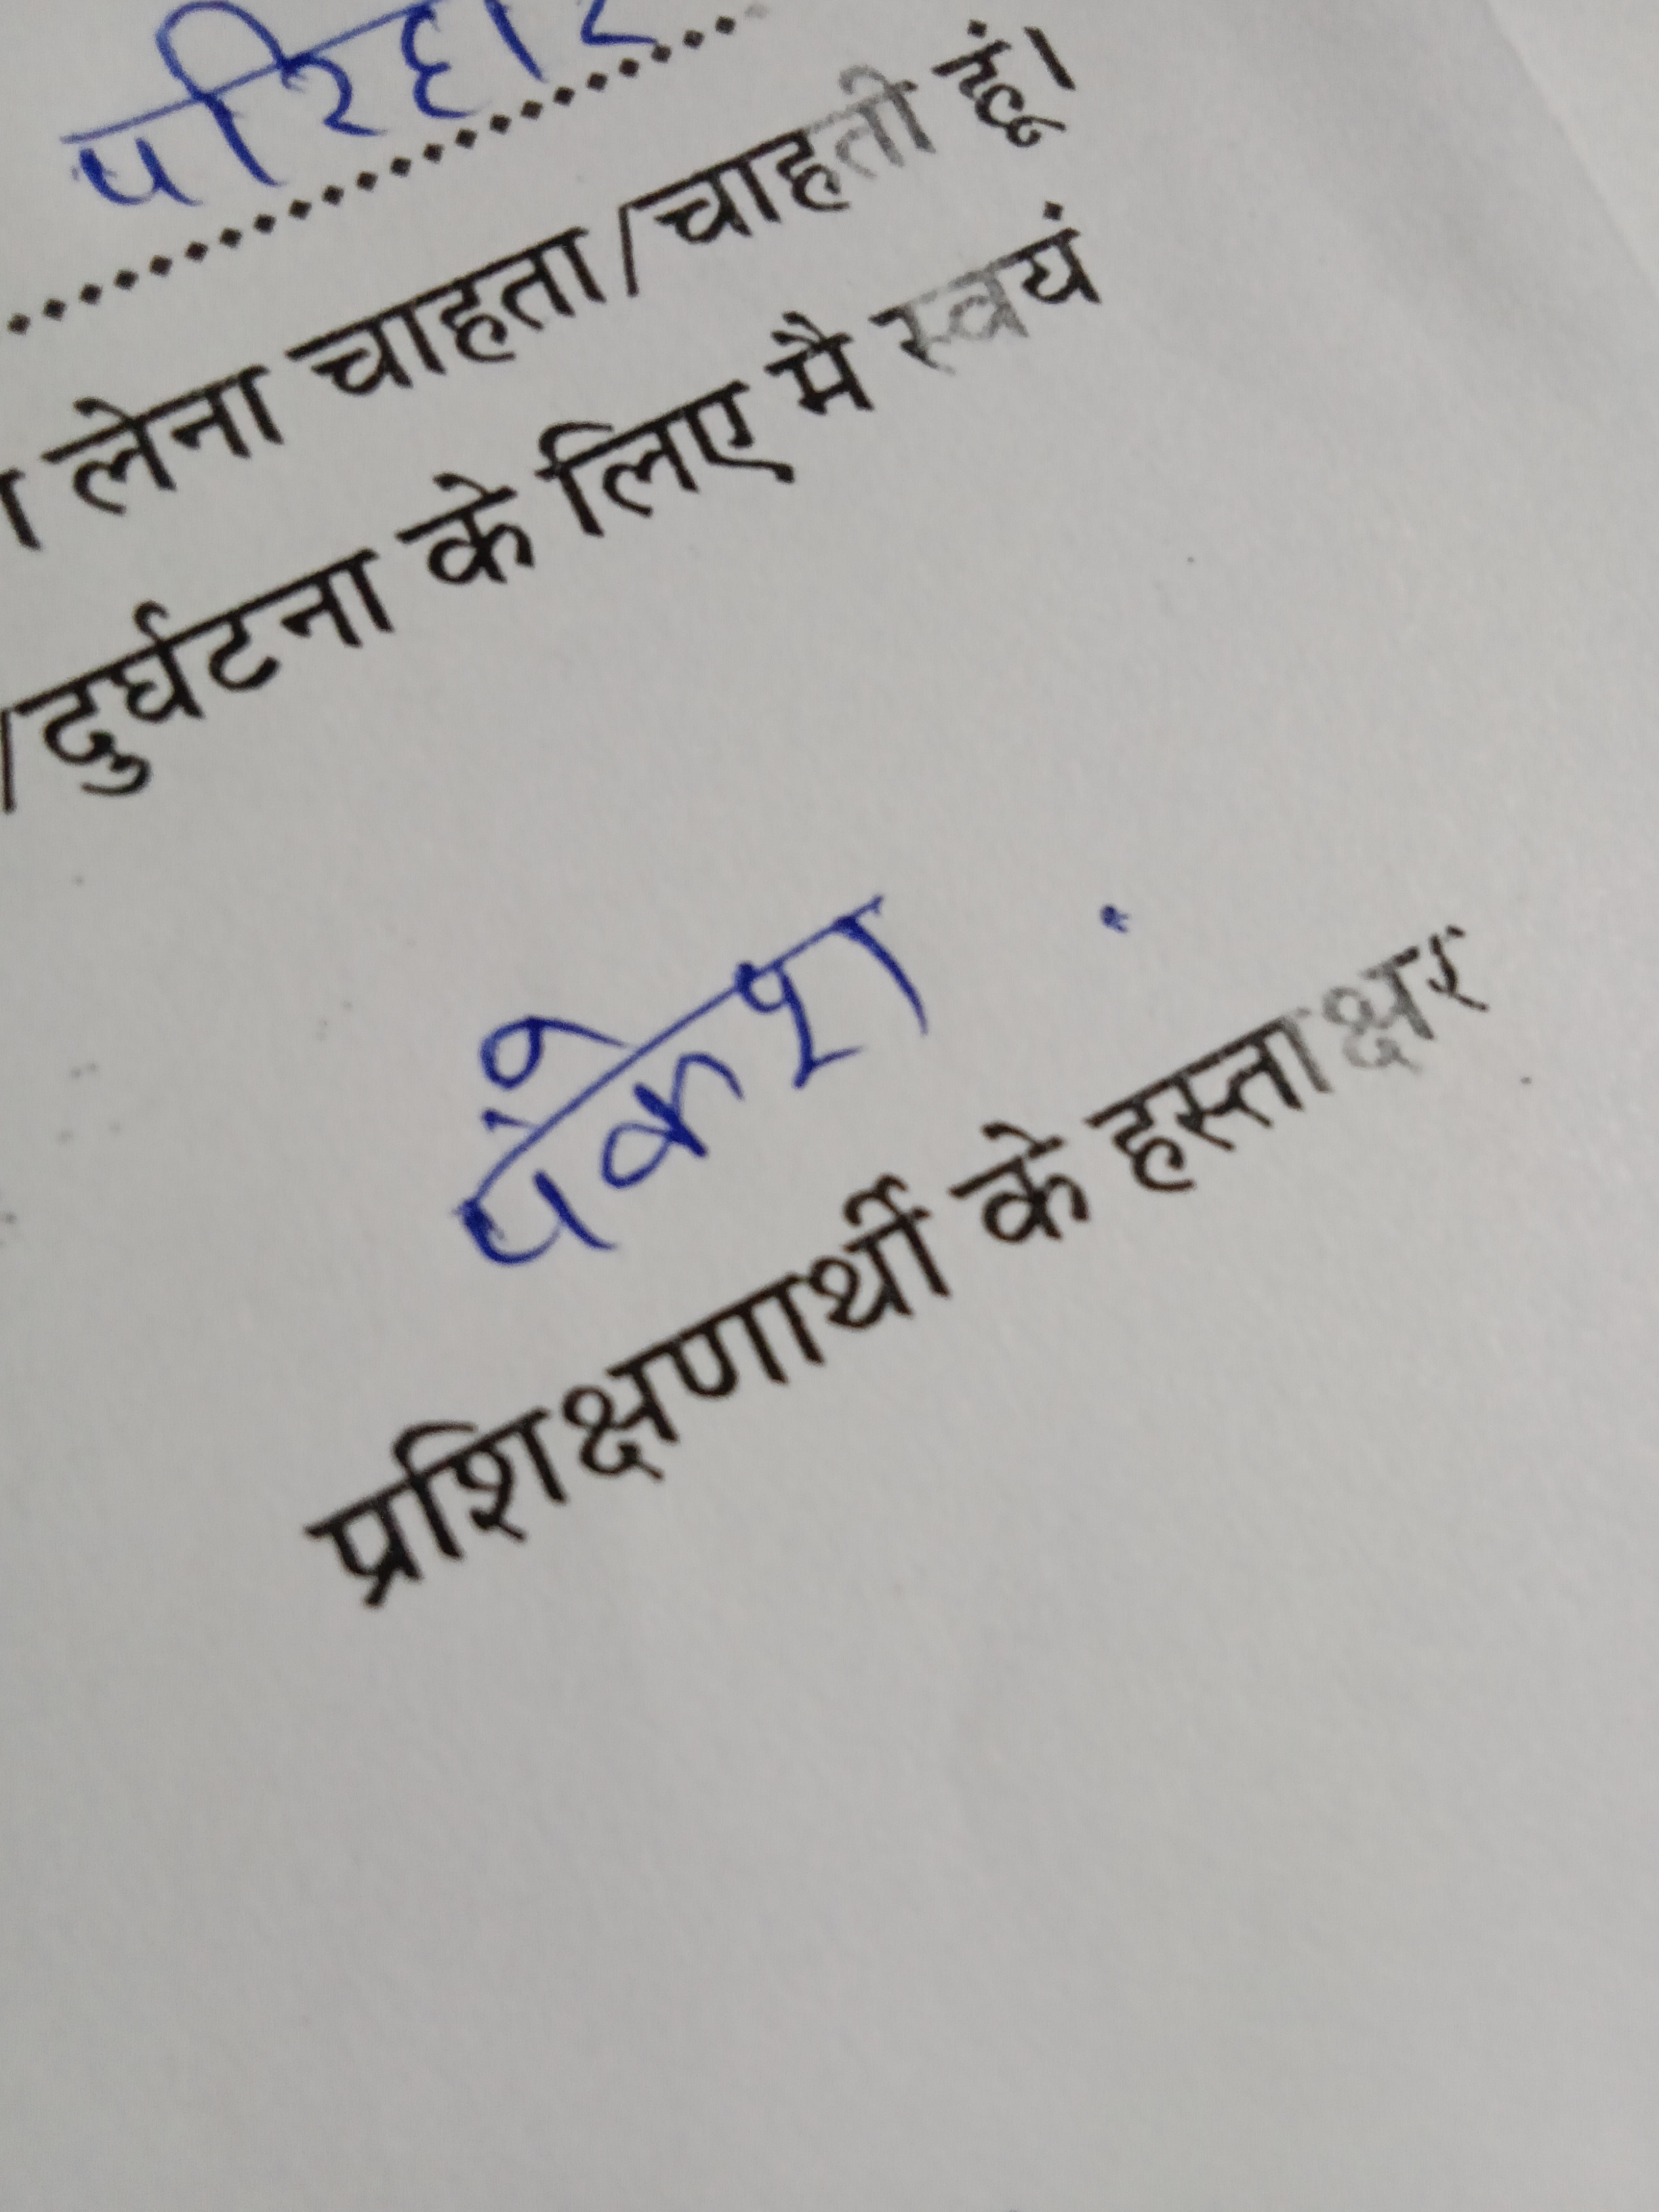 परिहार
लेना चाहता/चाहती हूं।
/दुर्घटना के लिए मै स्वयं
प्रशिक्षणार्थी के हस्ताक्षर